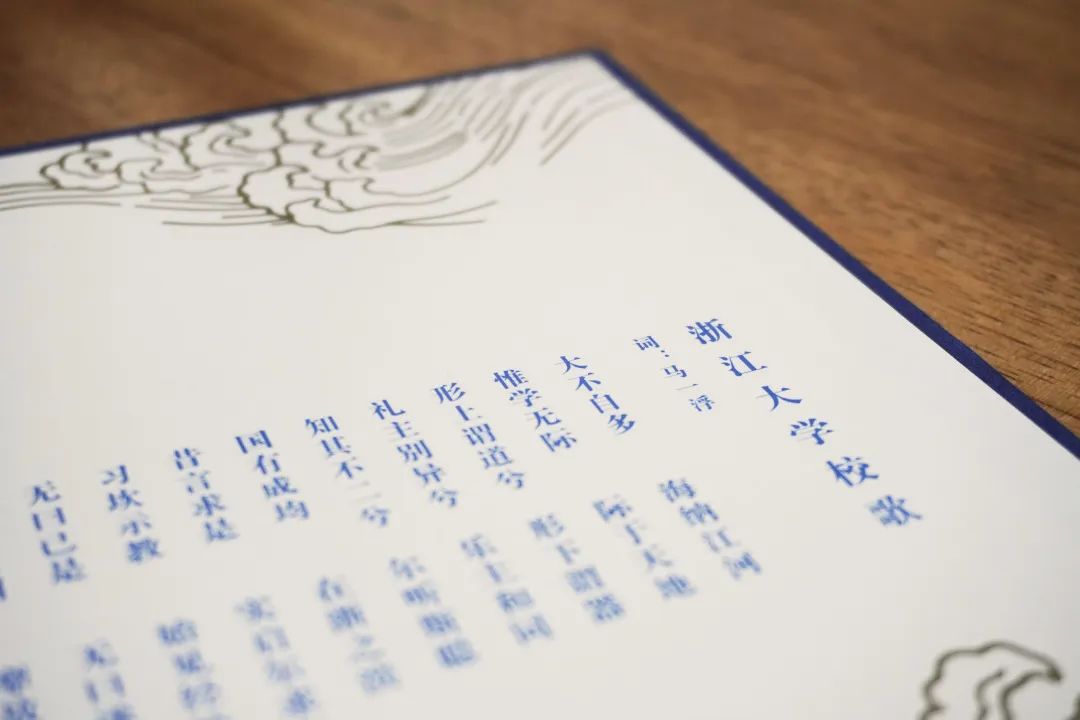 浙江大学校歌
词:马一浮
大不自多
海纳江河
惟学无际
际于天地
形上谓道兮
形下谓器
礼主别异兮
乐主和同
知其不二兮
尔听斯聪
国有成均
在浙之滨
昔言求是
实启尔求
习坎示教
始见经
无曰已是
无曰